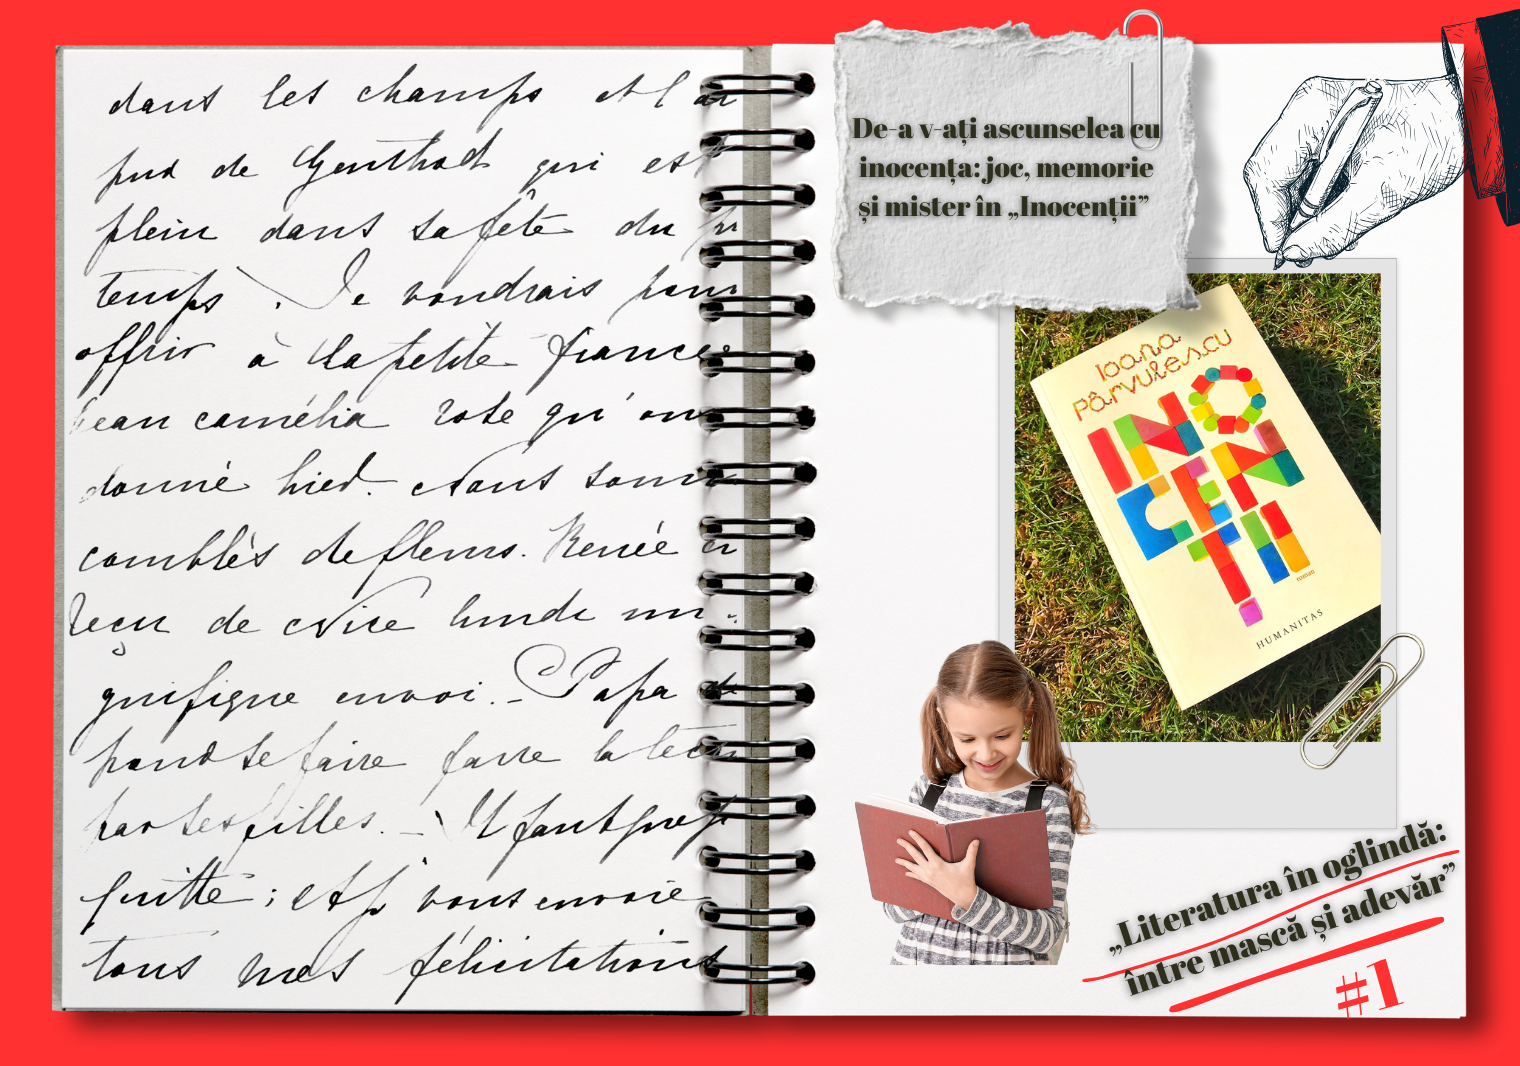 dans les champs et l'ai
pré de Genthod qui est
plein dans sa fête du pr
temps. Je voudrais pour
offrir à la petite
beau camélia rose qu'on
donné hier. Nous som
comblés de fleurs. Renée a
reçu de
gnifique envoi. — Papa
se faire faire la
par ses filles. — Il faut que je
quitte; et je vous envoie
tous mes félicitations
De-a v-ați ascunselea cu
inocența: joc, memorie
și mister în „Inocenții”
Ioana
Pârvulescu
INO
CEN
ȚII
roman
HUMANITAS
„Literatura în oglindă:
între mască și adevăr”
#1